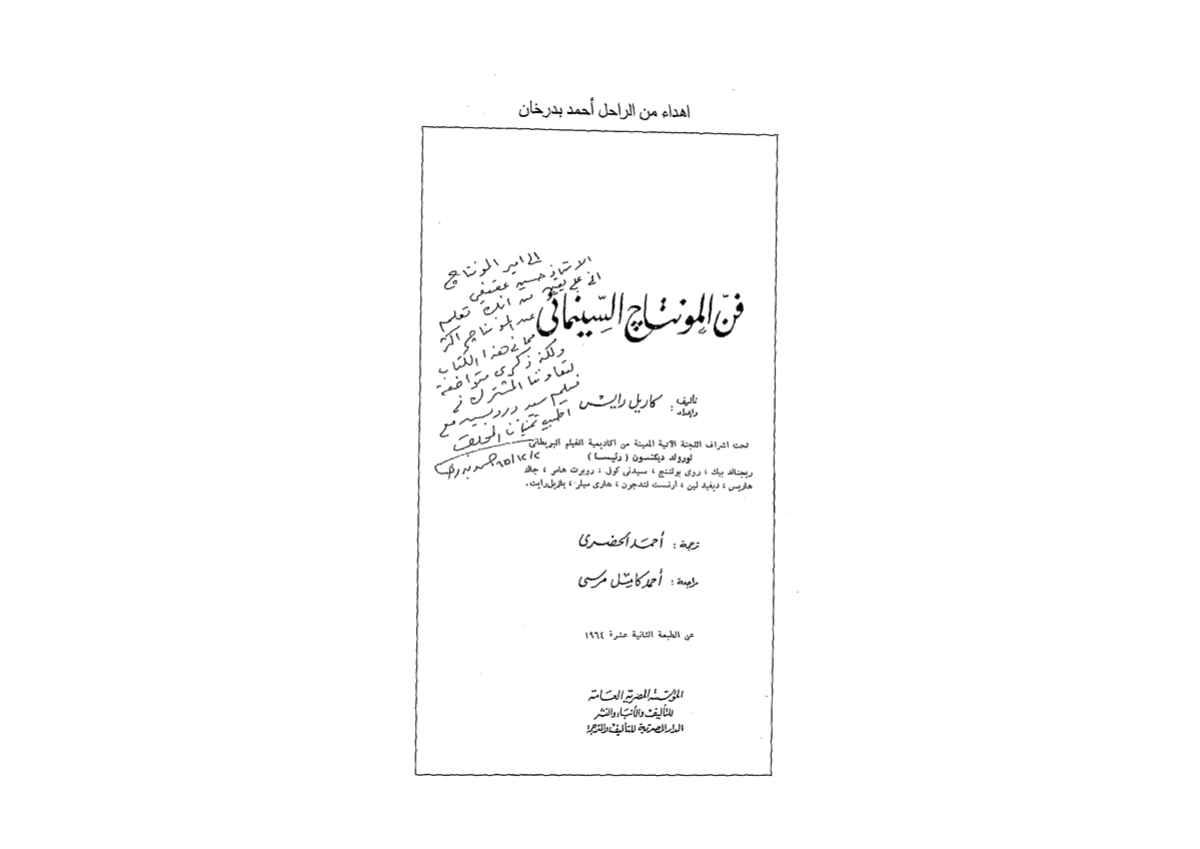 اهداء من الراحل أحمد بدرخان
الى امير المونتاج
الاستاذ حسين عفيفى
انى على يقين من انك تعلم
عن المونتاج اكثر
مما فى هذا الكتاب
ولكنه ذكرى متواضعة
لتعاوننا المشترك فى
فيلم سيد درويش مع
اطيب تمنيات المخلص
٦٥/١٢/٢
فن المونتاج السينمائى
تأليف وإعداد : كاريل رايس
تحت اشراف اللجنة الآتية المعينة من اكاديمية الفيلم البريطانى
ثورولد ديكنسون ( رئيسا )
ريجنالد بيك ، روى بولتنج ، سيدنى كول ، روبرت هامر ، جاك
هاريس ، ديفيد لين ، ارنست لندجرن ، هارى ميلر ، بازيل رايت .
ترجمة : أحمد الحضرى
راجعه : أحمد كامل مرسى
عن الطبعة الثانية عشرة ١٩٦٤
المؤسسة المصرية العامة
للتأليف والأنباء والنشر
الدار المصرية للتأليف والترجمة